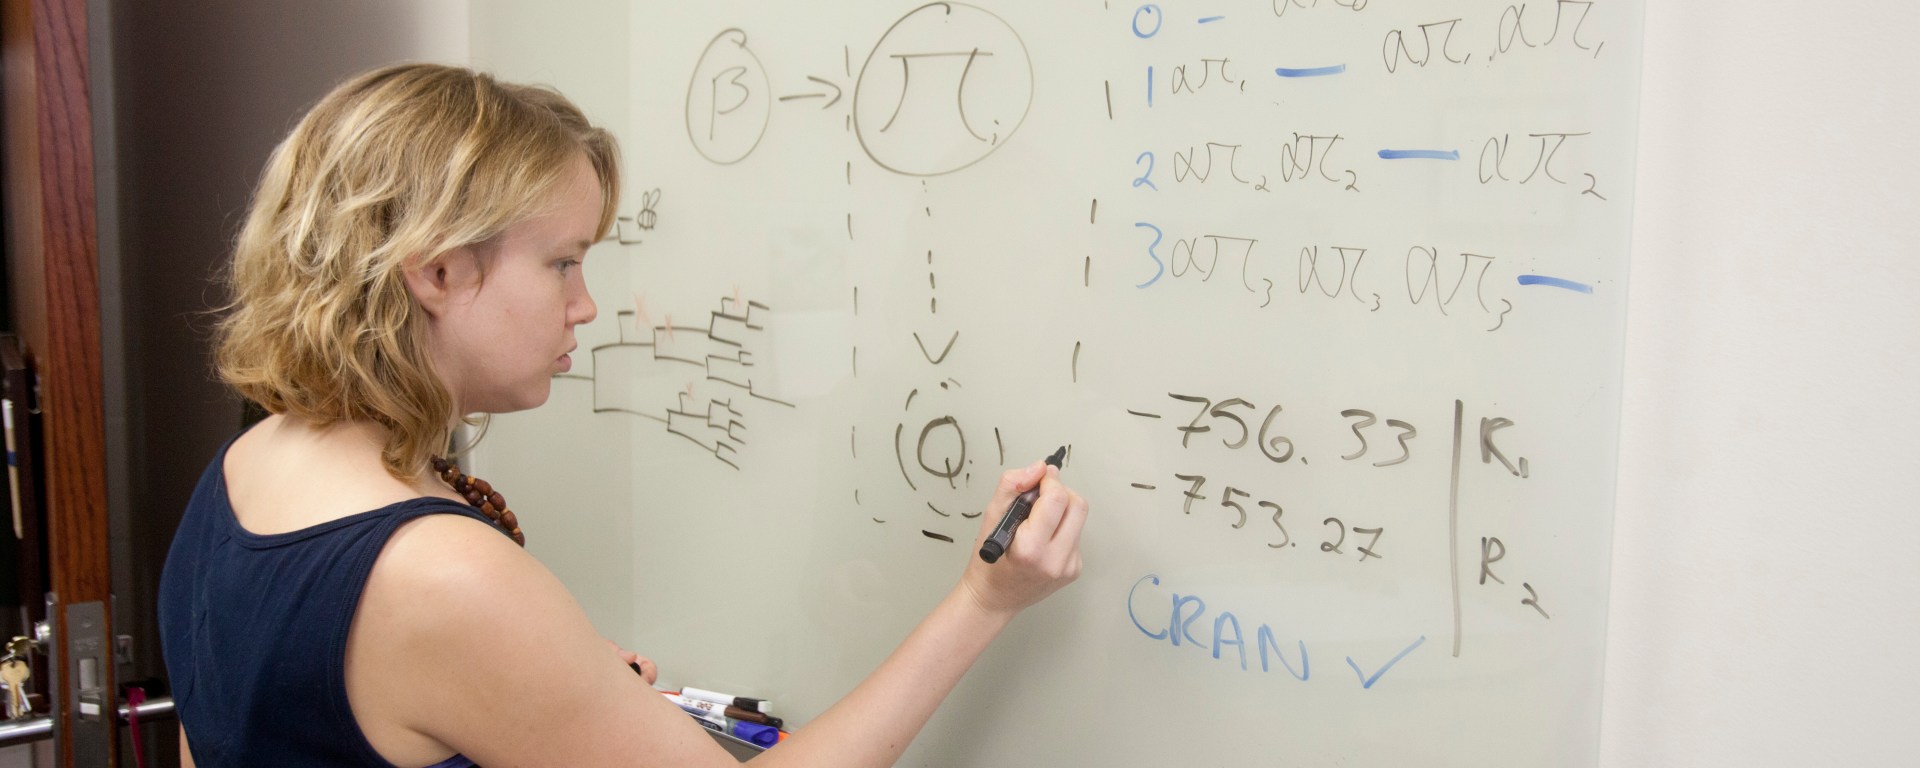 β → π i
0 –
1 απ₁ — απ₁ απ₁
2 απ₂ απ₂ — απ₂
3 απ₃ απ₃ απ₃ —
Q i
-756.33 | R₁
-753.27 | R₂
CRAN ✓